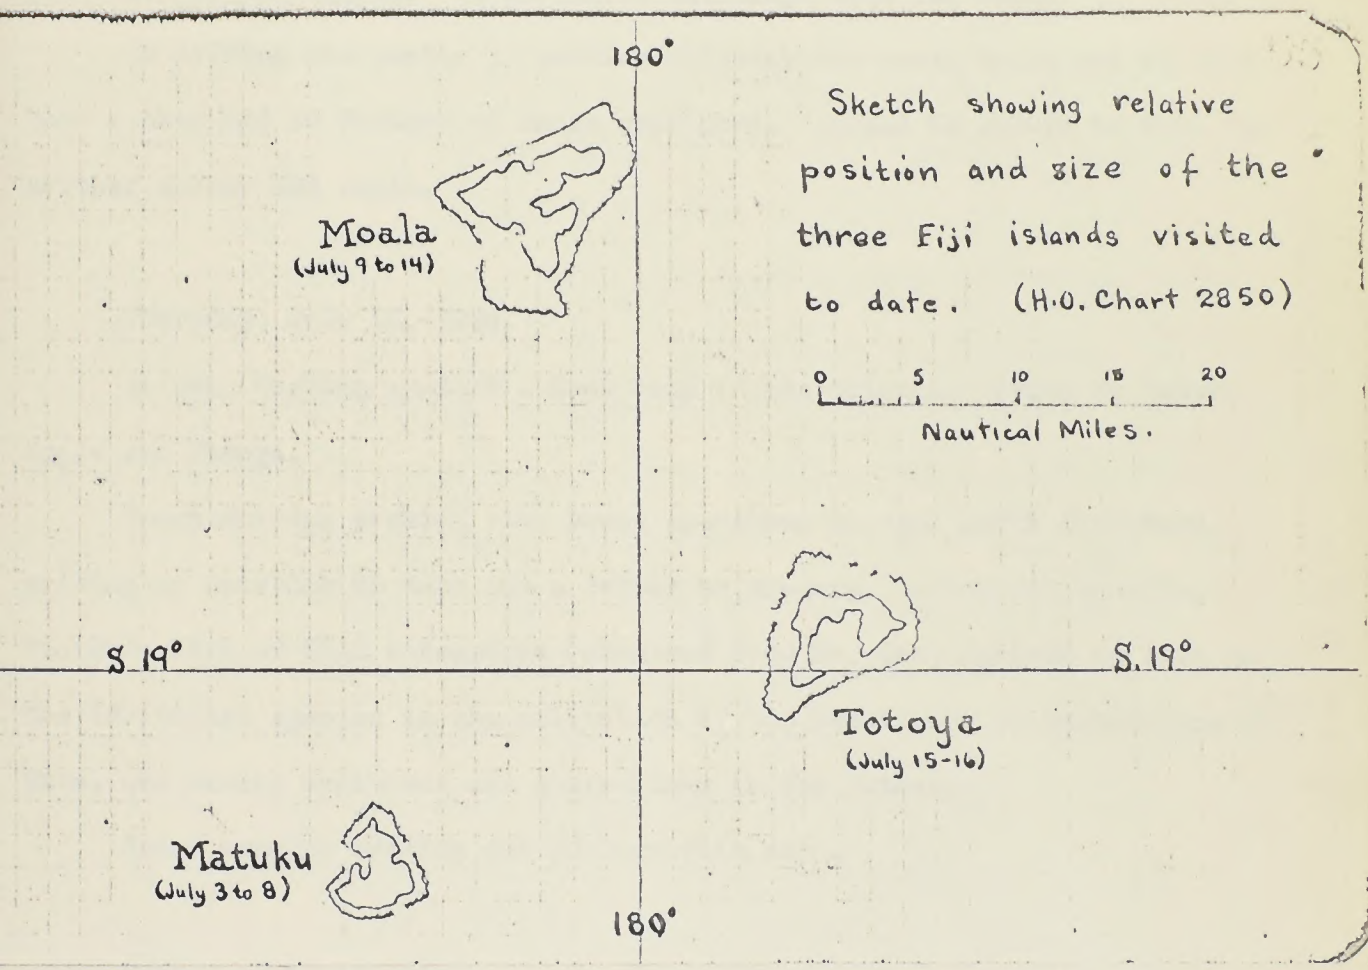 180°
Sketch showing relative
position and size of the
three Fiji islands visited
to date. (H.O. Chart 2850)
0 5 10 15 20
Nautical Miles.
Moala
(July 9 to 14)
S. 19°
S. 19°
Totoya
(July 15-16)
Matuku
(July 3 to 8)
180°